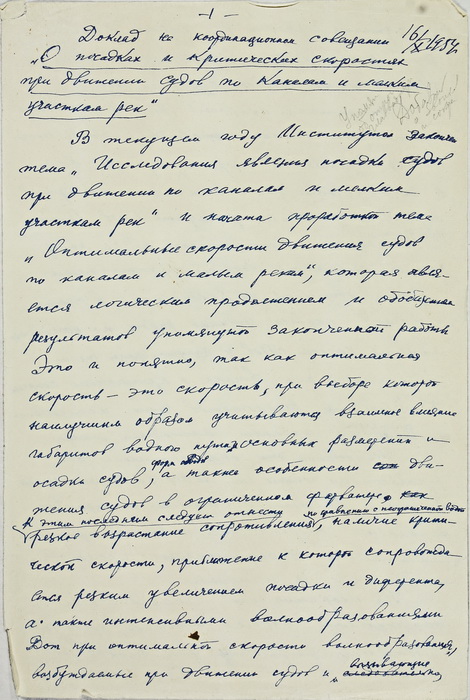 -1-
Доклад на координационном совещании 16/X 1954
"О посадках и критических скоростях
при движении судов по каналам и мелким
участкам рек"
В текущем году Институтом закончена
тема "Исследования явления посадки судов
при движении по каналам и мелким
участкам рек" и начата проработкой тема
"Оптимальные скорости движения судов
по каналам и малым рекам", которая явля-
ется логическим продолжением и обобщением
результатов упомянутой законченной работы
Это и понятно, так как оптимальная
скорость – это скорость, при выборе которой
наилучшим образом учитываются взаимное влияние
габаритов водного пути, основных размерений и
осадки судов, а также особенности дви-
жения судов в ограниченном фарватере как
К этим последним следует отнести по сравнению с неограниченной водой
резкое возрастание сопротивления, наличие крити-
ческой скорости, приближение к которой сопровожда-
ется резким увеличением посадки и дифферента,
а также интенсивным волнообразованием
Вот при оптимальной скорости волнообразования,
возбуждаемые при движении судов и вызывающие